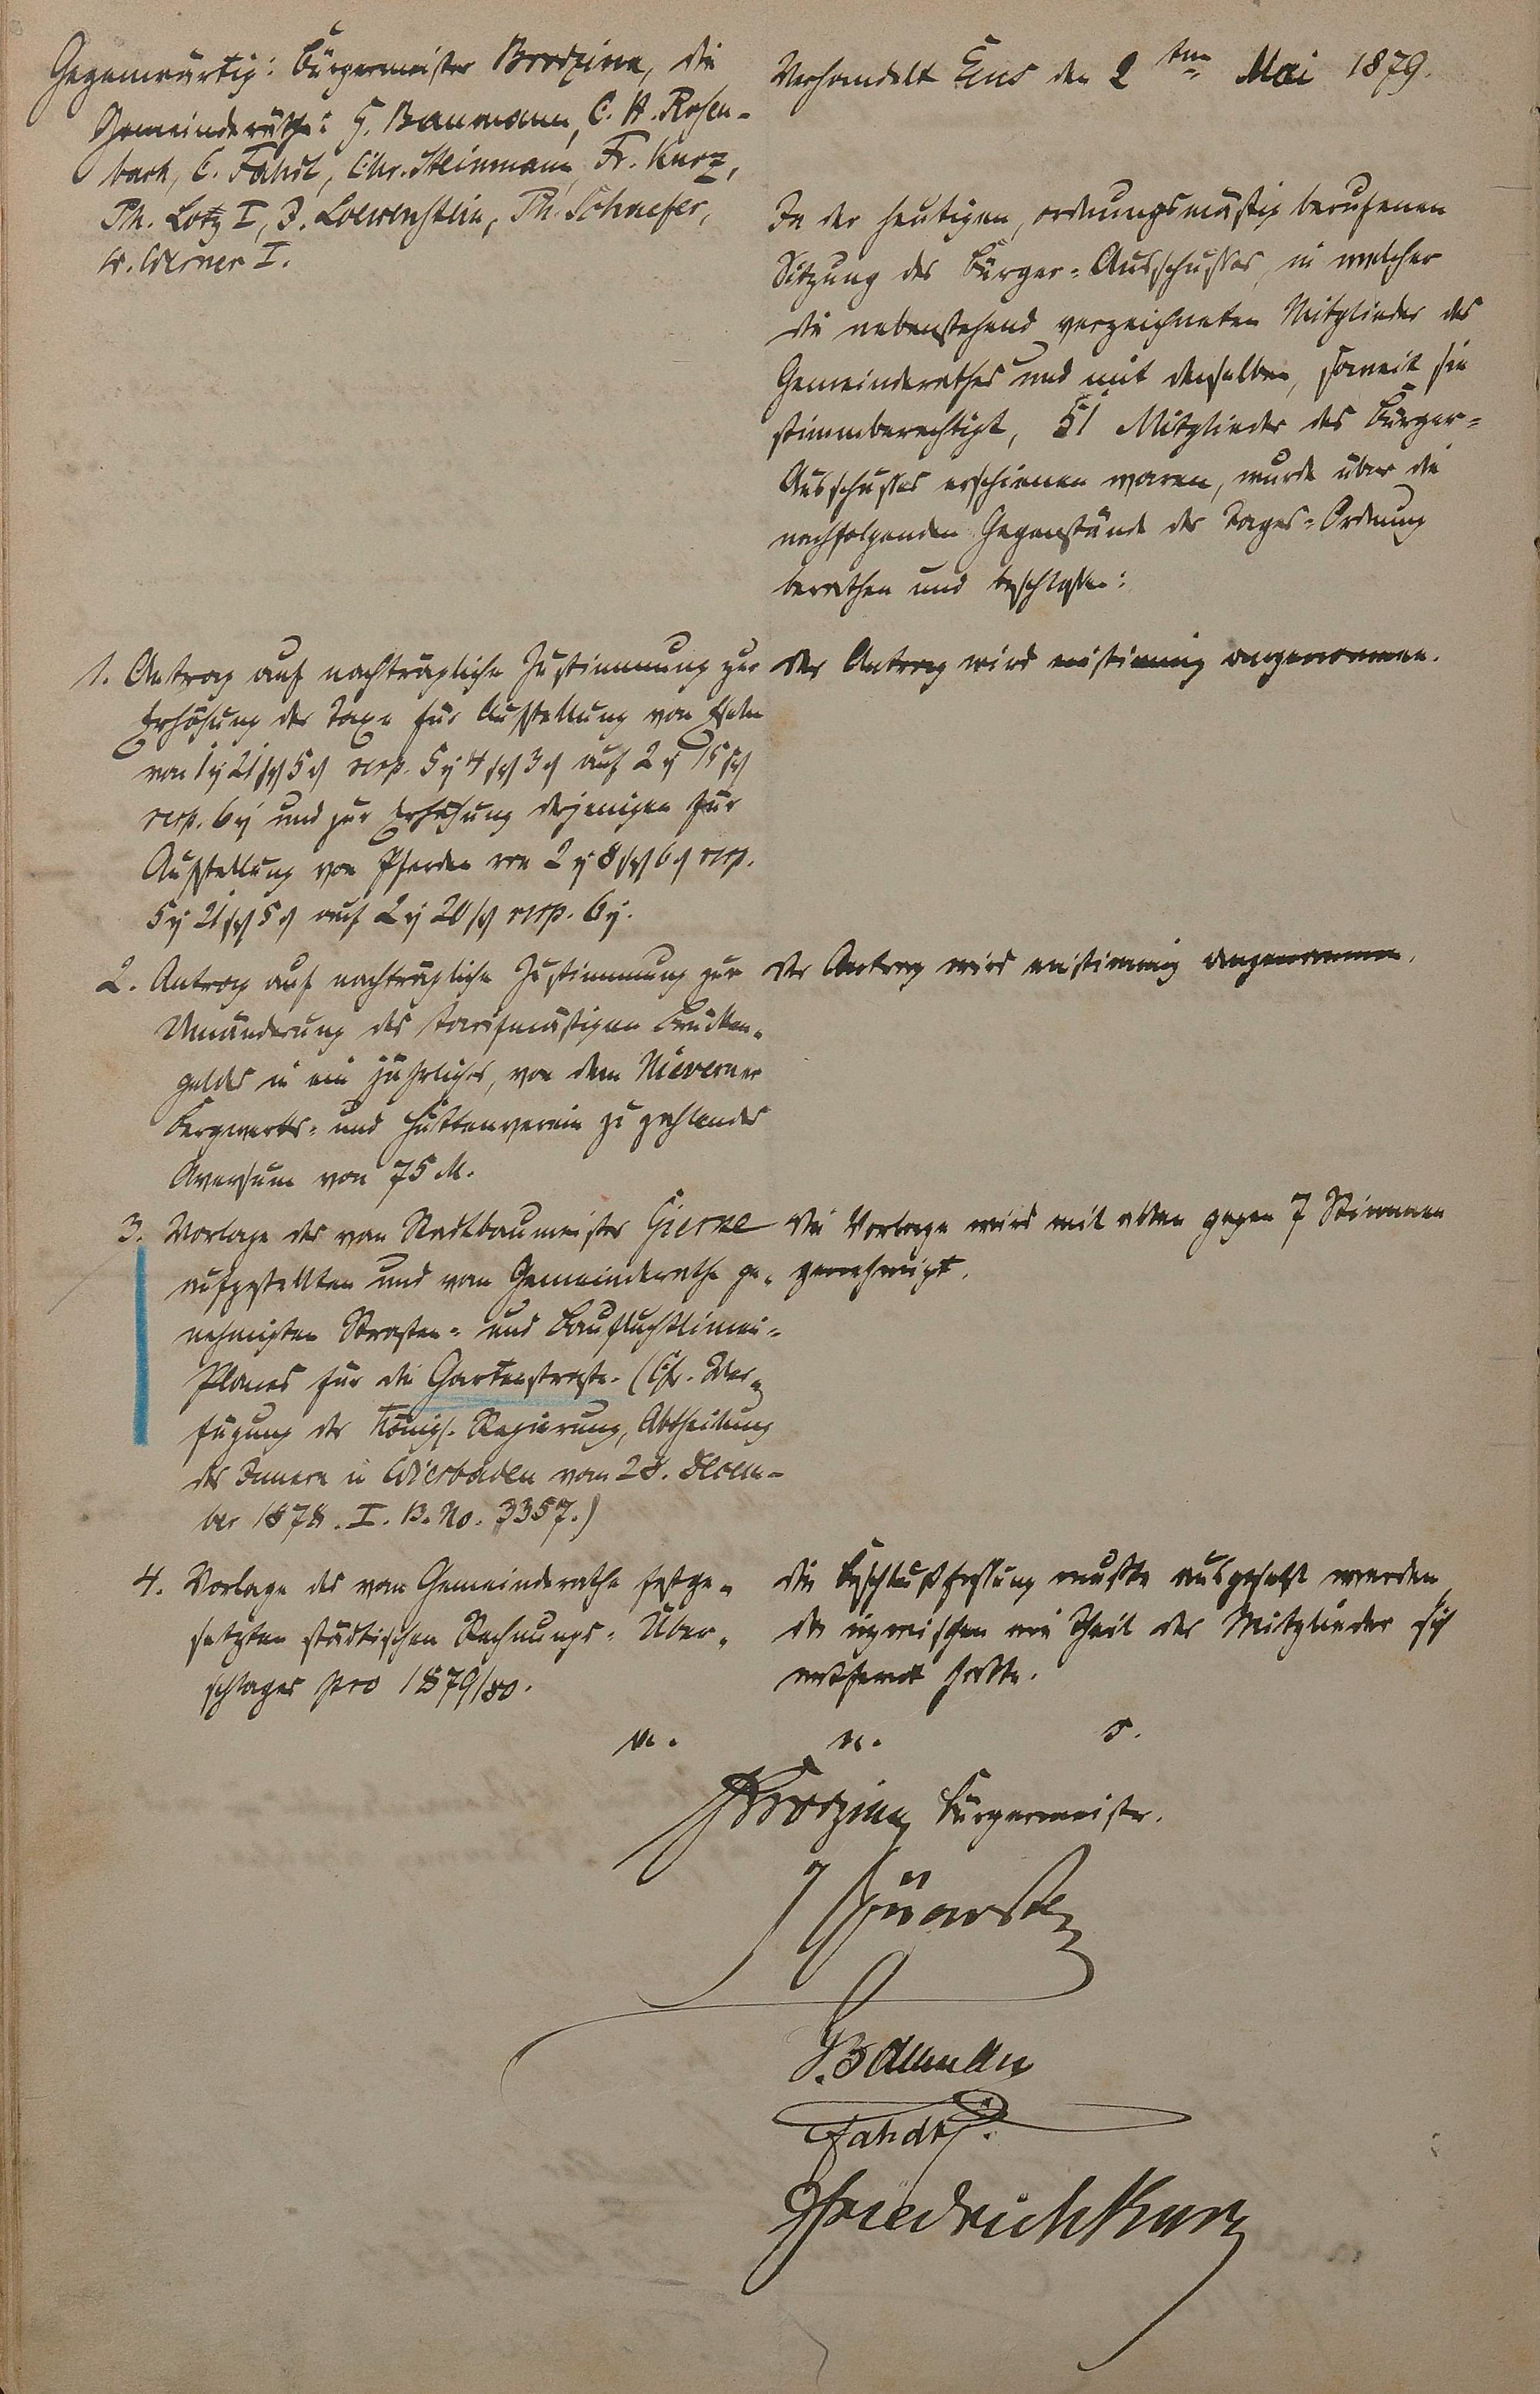 Gegenwärtig: Bürgermeister Brodzina, die
Gemeinderäthe: G. Baumann, C. H. Rosen-
bach, C. Fahdt, Chr. Steinmann, Fr. Kurz,
Ph. Lotz I, J. Loewenstein, Ph. Schaefer,
W. Werner I.
Verhandelt Ems den 2ten Mai 1879.
In der heutigen, ordnungsmäßig berufenen
Sitzung des Bürger-Ausschusses, in welcher
die nebenstehend verzeichneten Mitglieder des
Gemeinderathes und mit denselben, soweit sie
stimmberechtigt, 51 Mitglieder des Bürger-
Ausschusses erschienen waren, wurde über die
nachfolgenden Gegenstände der Tages-Ordnung
berathen und beschlossen:
1. Antrag auf nachträgliche Zustimmung zur
Erhöhung der Taxe für Aufstellung von Eseln
von 1 21 5 resp. 5 4 3 auf 2 15
resp. 6 und zur Erhöhung derjenigen für
Aufstellung von Pferden von 2 8 6 resp.
5 21 5 auf 2 20 resp. 6.
Der Antrag wird einstimmig angenommen.
2. Antrag auf nachträgliche Zustimmung zur
Umänderung des tarifmäßigen Brücken-
geldes in ein jährliches, von dem Nieverner
Bergwerks- und Hüttenverein zu zahlendes
Aversum von 75 M.
Der Antrag wird einstimmig angenommen.
3. Vorlage des vom Stadtbaumeister Gierke
aufgestellten und vom Gemeinderathe ge-
nehmigten Straßen- und Baufluchtlinien-
Planes für die Gartenstraße. (Cfr. Ver-
fügung der Königl. Regierung, Abtheilung
des Innern in Wiesbaden vom 28. Decem-
ber 1878. I. B. No. 3357.)
Die Vorlage wird mit allen gegen 7 Stimmen
genehmigt.
4. Vorlage des vom Gemeinderathe festge-
setzten städtischen Rechnungs-Über-
schlages pro 1879/80.
Die Beschlußfassung mußte ausgesetzt werden,
da inzwischen ein Theil der Mitglieder sich
entfernt hatte.
v. n. s.
Brodzina Bürgermeister.
G. Baumann
Fahdt
Friedrich Kurz